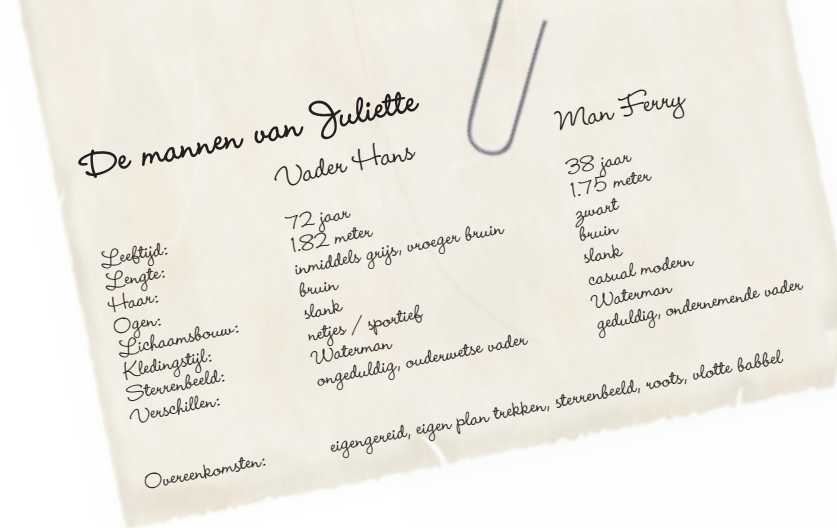 De mannen van Juliette
Vader Hans Man Ferry
Leeftijd: 72 jaar 38 jaar
Lengte: 1.82 meter 1.75 meter
Haar: inmiddels grijs, vroeger bruin zwart
Ogen: bruin bruin
Lichaamsbouw: slank slank
Kledingstijl: netjes / sportief casual modern
Sterrenbeeld: Waterman Waterman
Verschillen: ongeduldig, ouderwetse vader geduldig, ondernemende vader
Overeenkomsten: eigengereid, eigen plan trekken, sterrenbeeld, roots, vlotte babbel